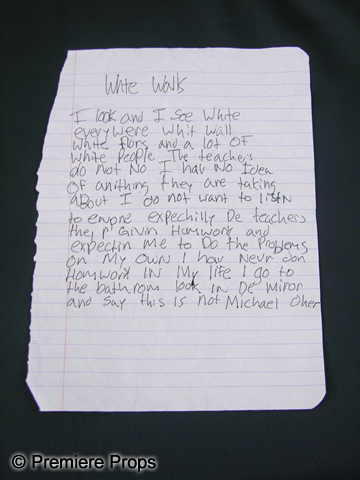 White Walls
I look and I See White
everywere Whit Wall
White flors and a lot OF
White People The teachers
do not No I hav No Idea
OF anithing they are taking
about I do not want to listn
to enyone expechilly De teachers
they r Givin Homwork and
expectin me to Do the Problems
on My Own I hav Nevr don
Homwork IN My life I go to
the bathrom look in De miror
and Say this is not Michael Oher
© Premiere Props